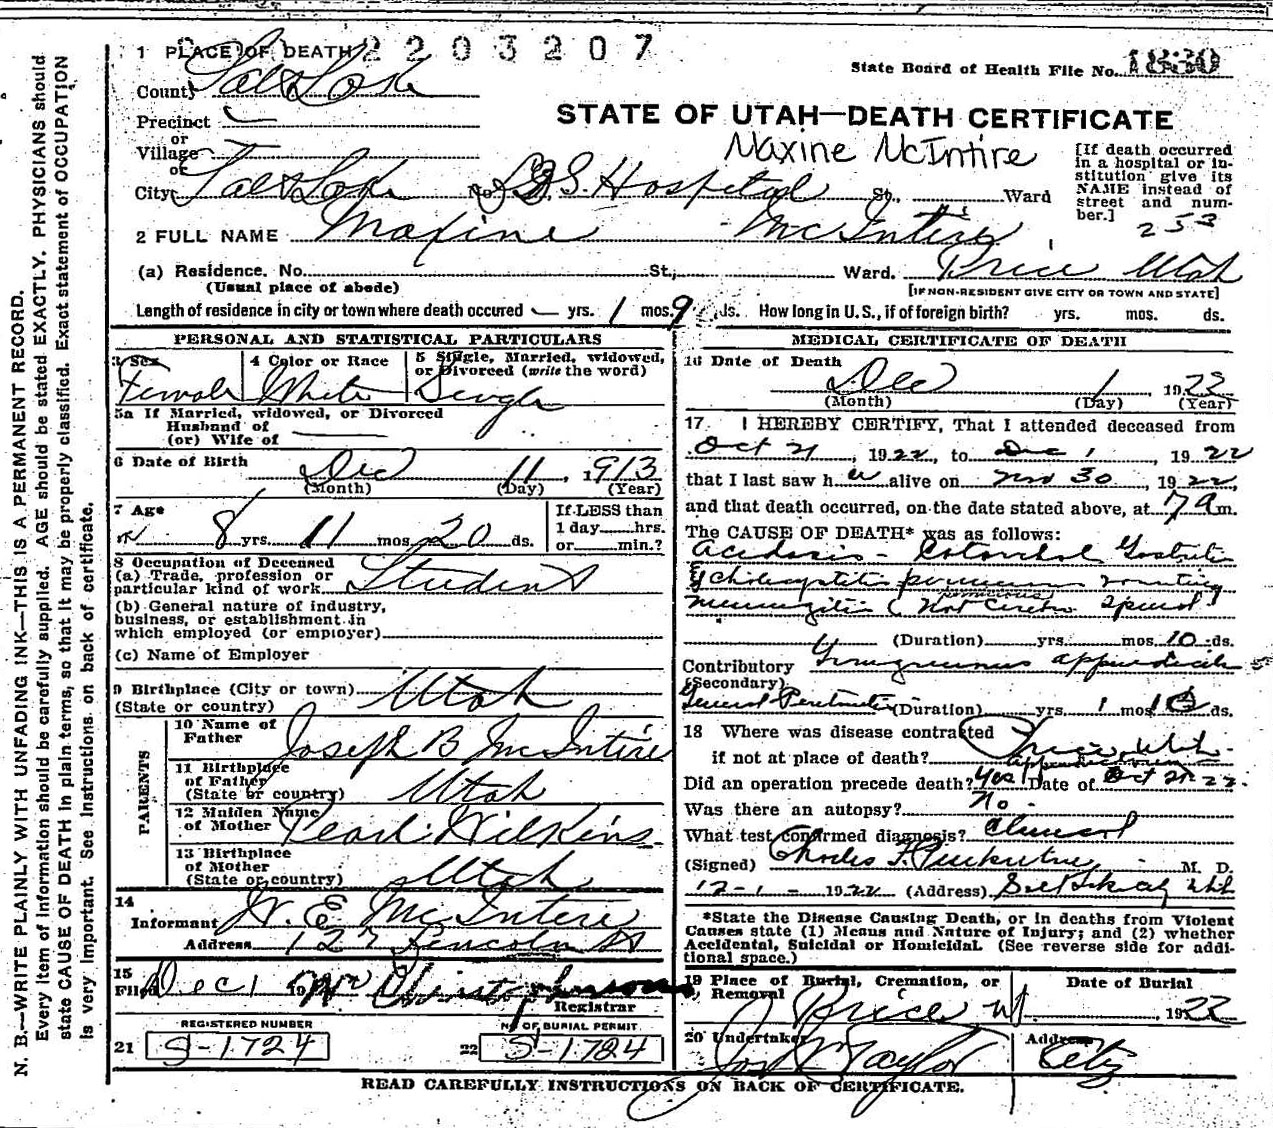 N. B.—WRITE PLAINLY WITH UNFADING INK—THIS IS A PERMANENT RECORD.
Every item of information should be carefully supplied. AGE should be stated EXACTLY. PHYSICIANS should
state CAUSE OF DEATH in plain terms, so that it may be properly classified. Exact statement of OCCUPATION
is very important. See instructions on back of certificate.
1 PLACE OF DEATH 2203207
State Board of Health File No. 1830
County Salt Lake
STATE OF UTAH—DEATH CERTIFICATE
Precinct
or
Village
or
Maxine McIntire
[If death occurred in a hospital or institution give its NAME instead of street and number.]
253
City Salt Lake No. L.D.S. Hospital St., Ward
2 FULL NAME Maxine McIntire
(a) Residence. No. St., Ward. Price Utah
(Usual place of abode) [IF NON-RESIDENT GIVE CITY OR TOWN AND STATE]
Length of residence in city or town where death occured — yrs. 1 mos. 9 ds. How long in U. S., if of foreign birth? yrs. mos. ds.
PERSONAL AND STATISTICAL PARTICULARS
3 Sex Female
4 Color or Race White
5 Single, Married, widowed, or Divorced (write the word) Single
5a If Married, widowed, or Divorced
Husband of
(or) Wife of
6 Date of Birth Dec 11, 1913
(Month) (Day) (Year)
7 Age 8 yrs. 11 mos. 20 ds.
If LESS than
1 day hrs.
or min.?
8 Occupation of Deceased
(a) Trade, profession or
particular kind of work Student
(b) General nature of industry,
business, or establishment in
which employed (or employer)
(c) Name of Employer
9 Birthplace (City or town) Utah
(State or country)
PARENTS
10 Name of
Father Joseph B McIntire
11 Birthplace
of Father Utah
(State or country)
12 Maiden Name
of Mother Pearl Wilkins
13 Birthplace
of Mother Utah
(State or country)
14
Informant W. E. McIntire
Address 127 Lincoln St
15
Filed Dec 1 19 Christophersons
Registrar
REGISTERED NUMBER
21 S-1724
No OF BURIAL PERMIT
22 S-1724
MEDICAL CERTIFICATE OF DEATH
16 Date of Death
Dec 1 1922
(Month) (Day) (Year)
17 I HEREBY CERTIFY, That I attended deceased from
Oct 21, 1922, to Dec 1, 1922
that I last saw her alive on Nov 30, 1922,
and that death occurred, on the date stated above, at 7 a m.
The CAUSE OF DEATH* was as follows:
Acidosis - Catarrhal Gastritis
Cholecystitis pernicious vomiting
Meningitis (Not Cerebro Spinal)
(Duration) yrs. mos. 10 ds.
Contributory Gangrenous appendicitis
(Secondary)
General Peritonitis (Duration) yrs. 1 mos. 10 ds.
18 Where was disease contracted
if not at place of death? Price, Utah.
Did an operation precede death? Yes Date of Oct 21-22.
Was there an autopsy? No.
What test confirmed diagnosis? Clinical
(Signed) Charles F. M. D.
12-1- 1922 (Address) Salt Lake City Utah
*State the Disease Causing Death, or in deaths from Violent
Causes state (1) Means and Nature of Injury; and (2) whether
Accidental, Suicidal or Homicidal. (See reverse side for addi-
tional space.)
19 Place of Burial, Cremation, or
Removal Price Ut
Date of Burial
, 1922
20 Undertaker Jos Wm Taylor
Address City
READ CAREFULLY INSTRUCTIONS ON BACK OF CERTIFICATE.